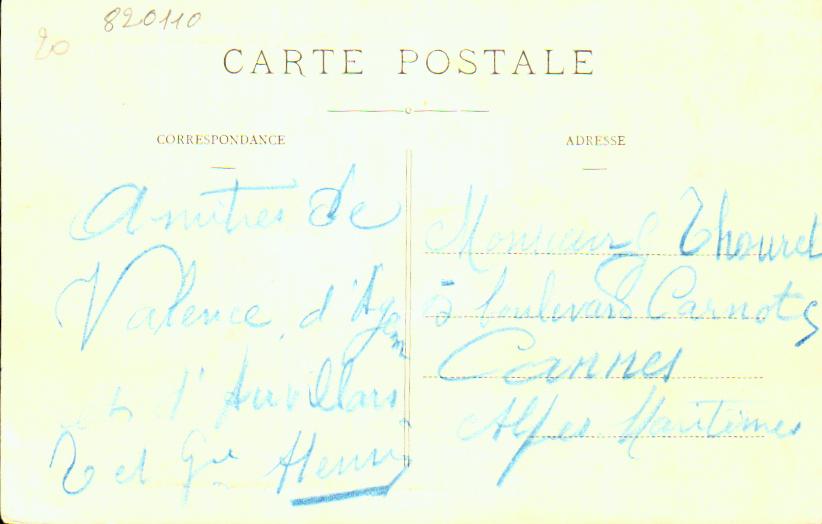 820110
20
CARTE POSTALE
CORRESPONDANCE
Amitiés de
Valence d'Agen
et d'Auvillars
T et Gne Henri
ADRESSE
Monsieur Thouret
boulevard Carnot
Cannes
Alpes Maritimes